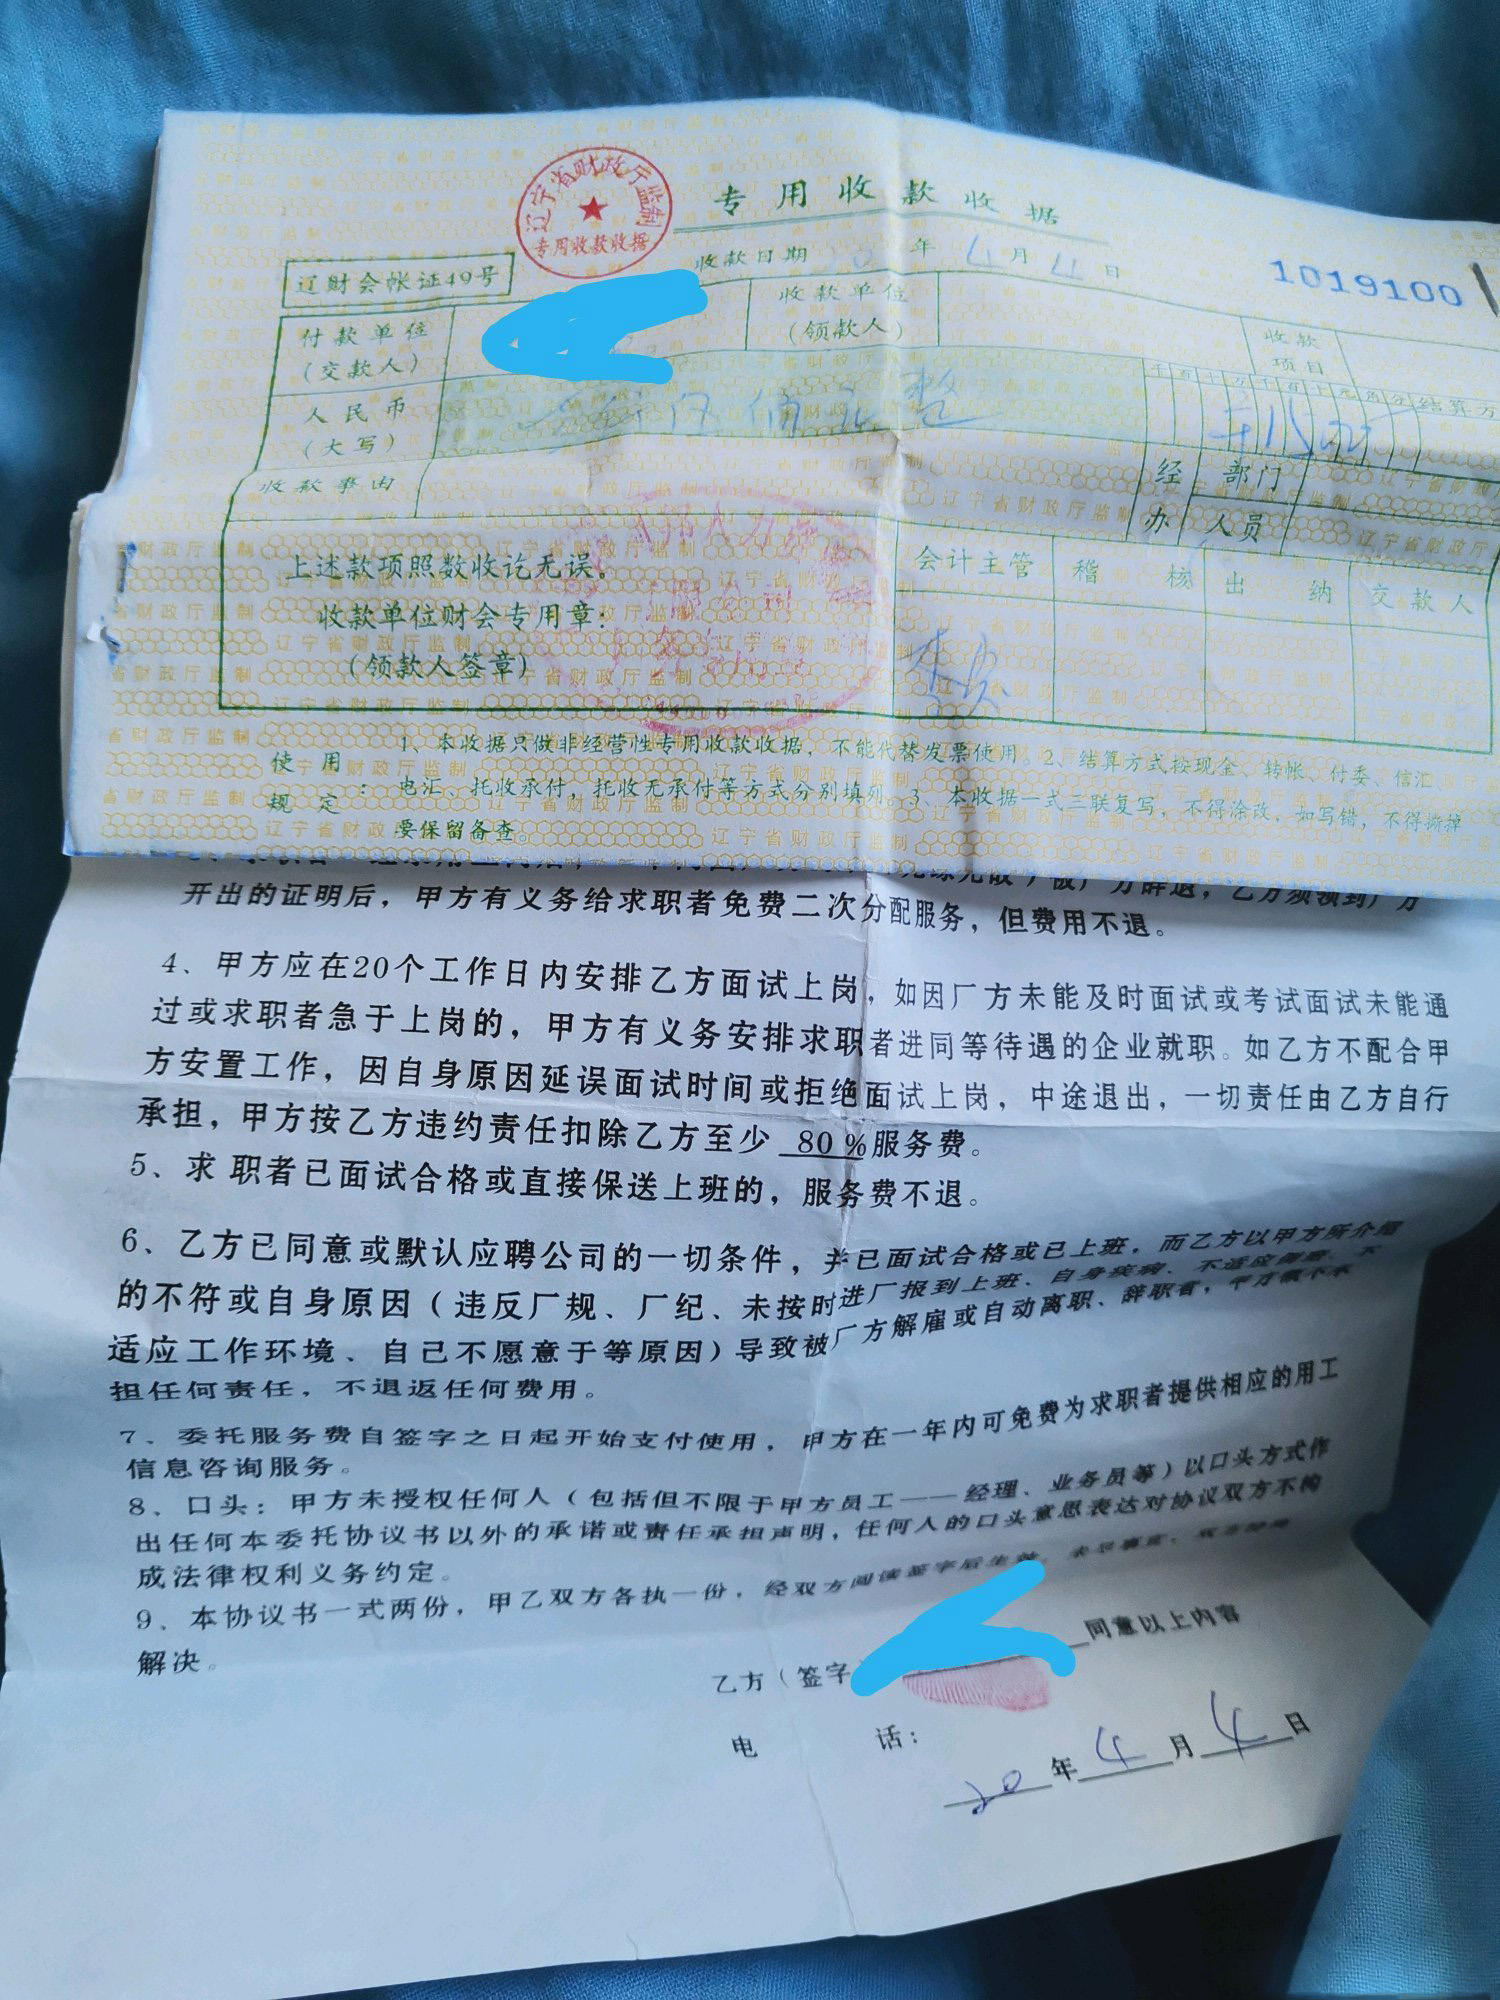 辽宁省财政厅监制
专用收款收据
专用收款收据
收款日期 年 4月 4日
1019100
辽财会帐证49号
付款单位
(交款人)
收款单位
(领款人)
收款
项目
人民币
(大写)
整
千百十万千百十元角分
结算方
收款事由
经办
部门
人员
上述款项照数收讫无误。
收款单位财会专用章:
(领款人签章)
会计主管
稽核
出纳
交款人
使用规定:
1、本收据只做非经营性专用收款收据,不能代替发票使用。2、结算方式按现金、转帐、付委、信汇、
电汇、托收承付,托收无承付等方式分别填列。3、本收据一式三联复写,不得涂改,如写错,不得撕掉
要保留备查。
开出的证明后,甲方有义务给求职者免费二次分配服务,但费用不退。
4、甲方应在20个工作日内安排乙方面试上岗,如因厂方未能及时面试或考试面试未能通
过或求职者急于上岗的,甲方有义务安排求职者进同等待遇的企业就职。如乙方不配合甲
方安置工作,因自身原因延误面试时间或拒绝面试上岗,中途退出,一切责任由乙方自行
承担,甲方按乙方违约责任扣除乙方至少 80%服务费。
5、求 职者已面试合格或直接保送上班的,服务费不退。
6、乙方已同意或默认应聘公司的一切条件,并已面试合格或已上班,而乙方以甲方所介绍
的不符或自身原因(违反厂规、厂纪、未按时进厂报到上班、自身疾病、不适应倒班、不
适应工作环境、自己不愿意于等原因)导致被厂方解雇或自动离职、辞职者,甲方概不承
担任何责任,不退返任何费用。
7、委托服务费自签字之日起开始支付使用,甲方在一年内可免费为求职者提供相应的用工
信息咨询服务。
8、口头:甲方未授权任何人(包括但不限于甲方员工——经理、业务员等)以口头方式作
出任何本委托协议书以外的承诺或责任承担声明,任何人的口头意思表达对协议双方不构
成法律权利义务约定。
9、本协议书一式两份,甲乙双方各执一份,经双方阅读签字后生效,未尽事宜,双方协商
解决。
乙方(签字) 同意以上内容
电 话:
20年4月4日